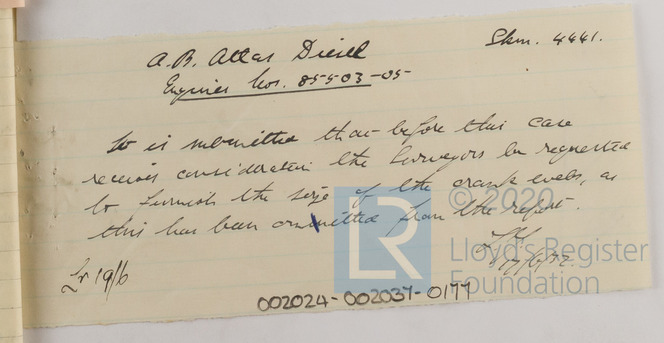 A.B. Atlas Diesel
Skm. 4441.
Engines Nos. 85503-05
It is submitted that before this case
receives consideration the Surveyors be requested
to furnish the size of the crank webs, as
this has been ommitted from the report.
17/6/32.
Lr 19/6
© 2020
LR
Lloyd's Register
Foundation
002024-002037-0177